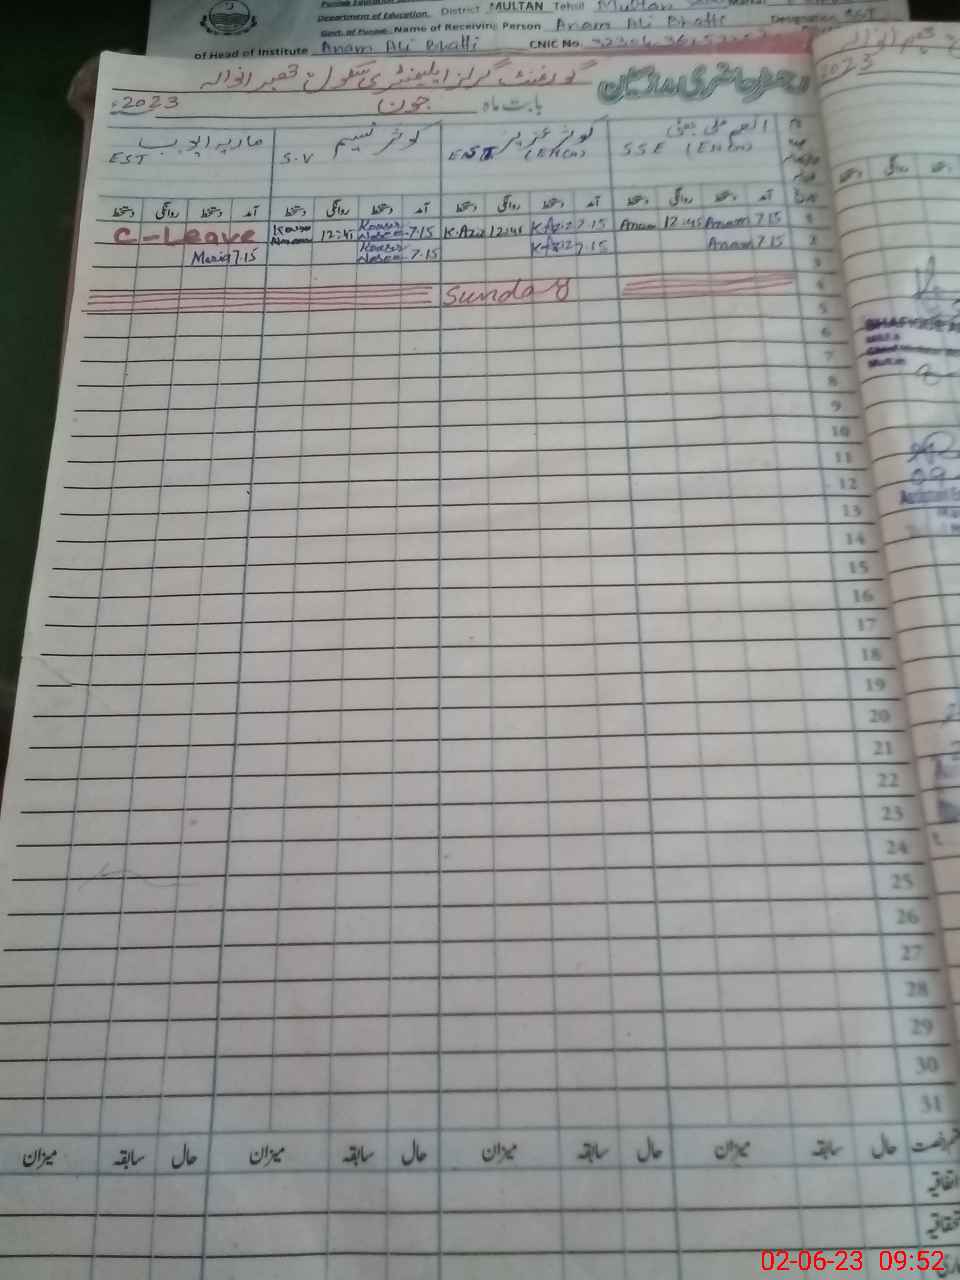 Department of Education, District MULTAN Tehsil Multan
Govt. of Punjab Name of Receiving Person Anam Ali Bhatti Designation SST
of Head of Institute Anam Ali Bhatti CNIC No.
گورنمنٹ گرلز ایلیمنٹری سکول
رجسٹر حاضری مدرسین
بابت ماہ جون 2023ء
2023
انعم علی بھٹی کوثر عزیز کوثر نسیم ماریہ ایوب
SSE EST S.V EST
آمد دستخط روانگی دستخط آمد دستخط روانگی دستخط آمد دستخط روانگی دستخط آمد دستخط روانگی دستخط
C-Leave Kousar Naseem 12:45 Kousar Naseem 7.15 K.Aziz 12:45 K.Aziz 7.15 Anam 12:45 Anam 7.15 1
Maria 7.15 Kousar Naseem 7.15 K.Aziz 7.15 Anam 7.15 2
3
Sunday 4
5
6
7
8
9
10
11
12
13
14
15
16
17
18
19
20
21
22
23
24
25
26
27
28
29
30
31
حال سابقہ میزان حال سابقہ میزان حال سابقہ میزان حال سابقہ میزان
اتفاقیہ
02-06-23 09:52